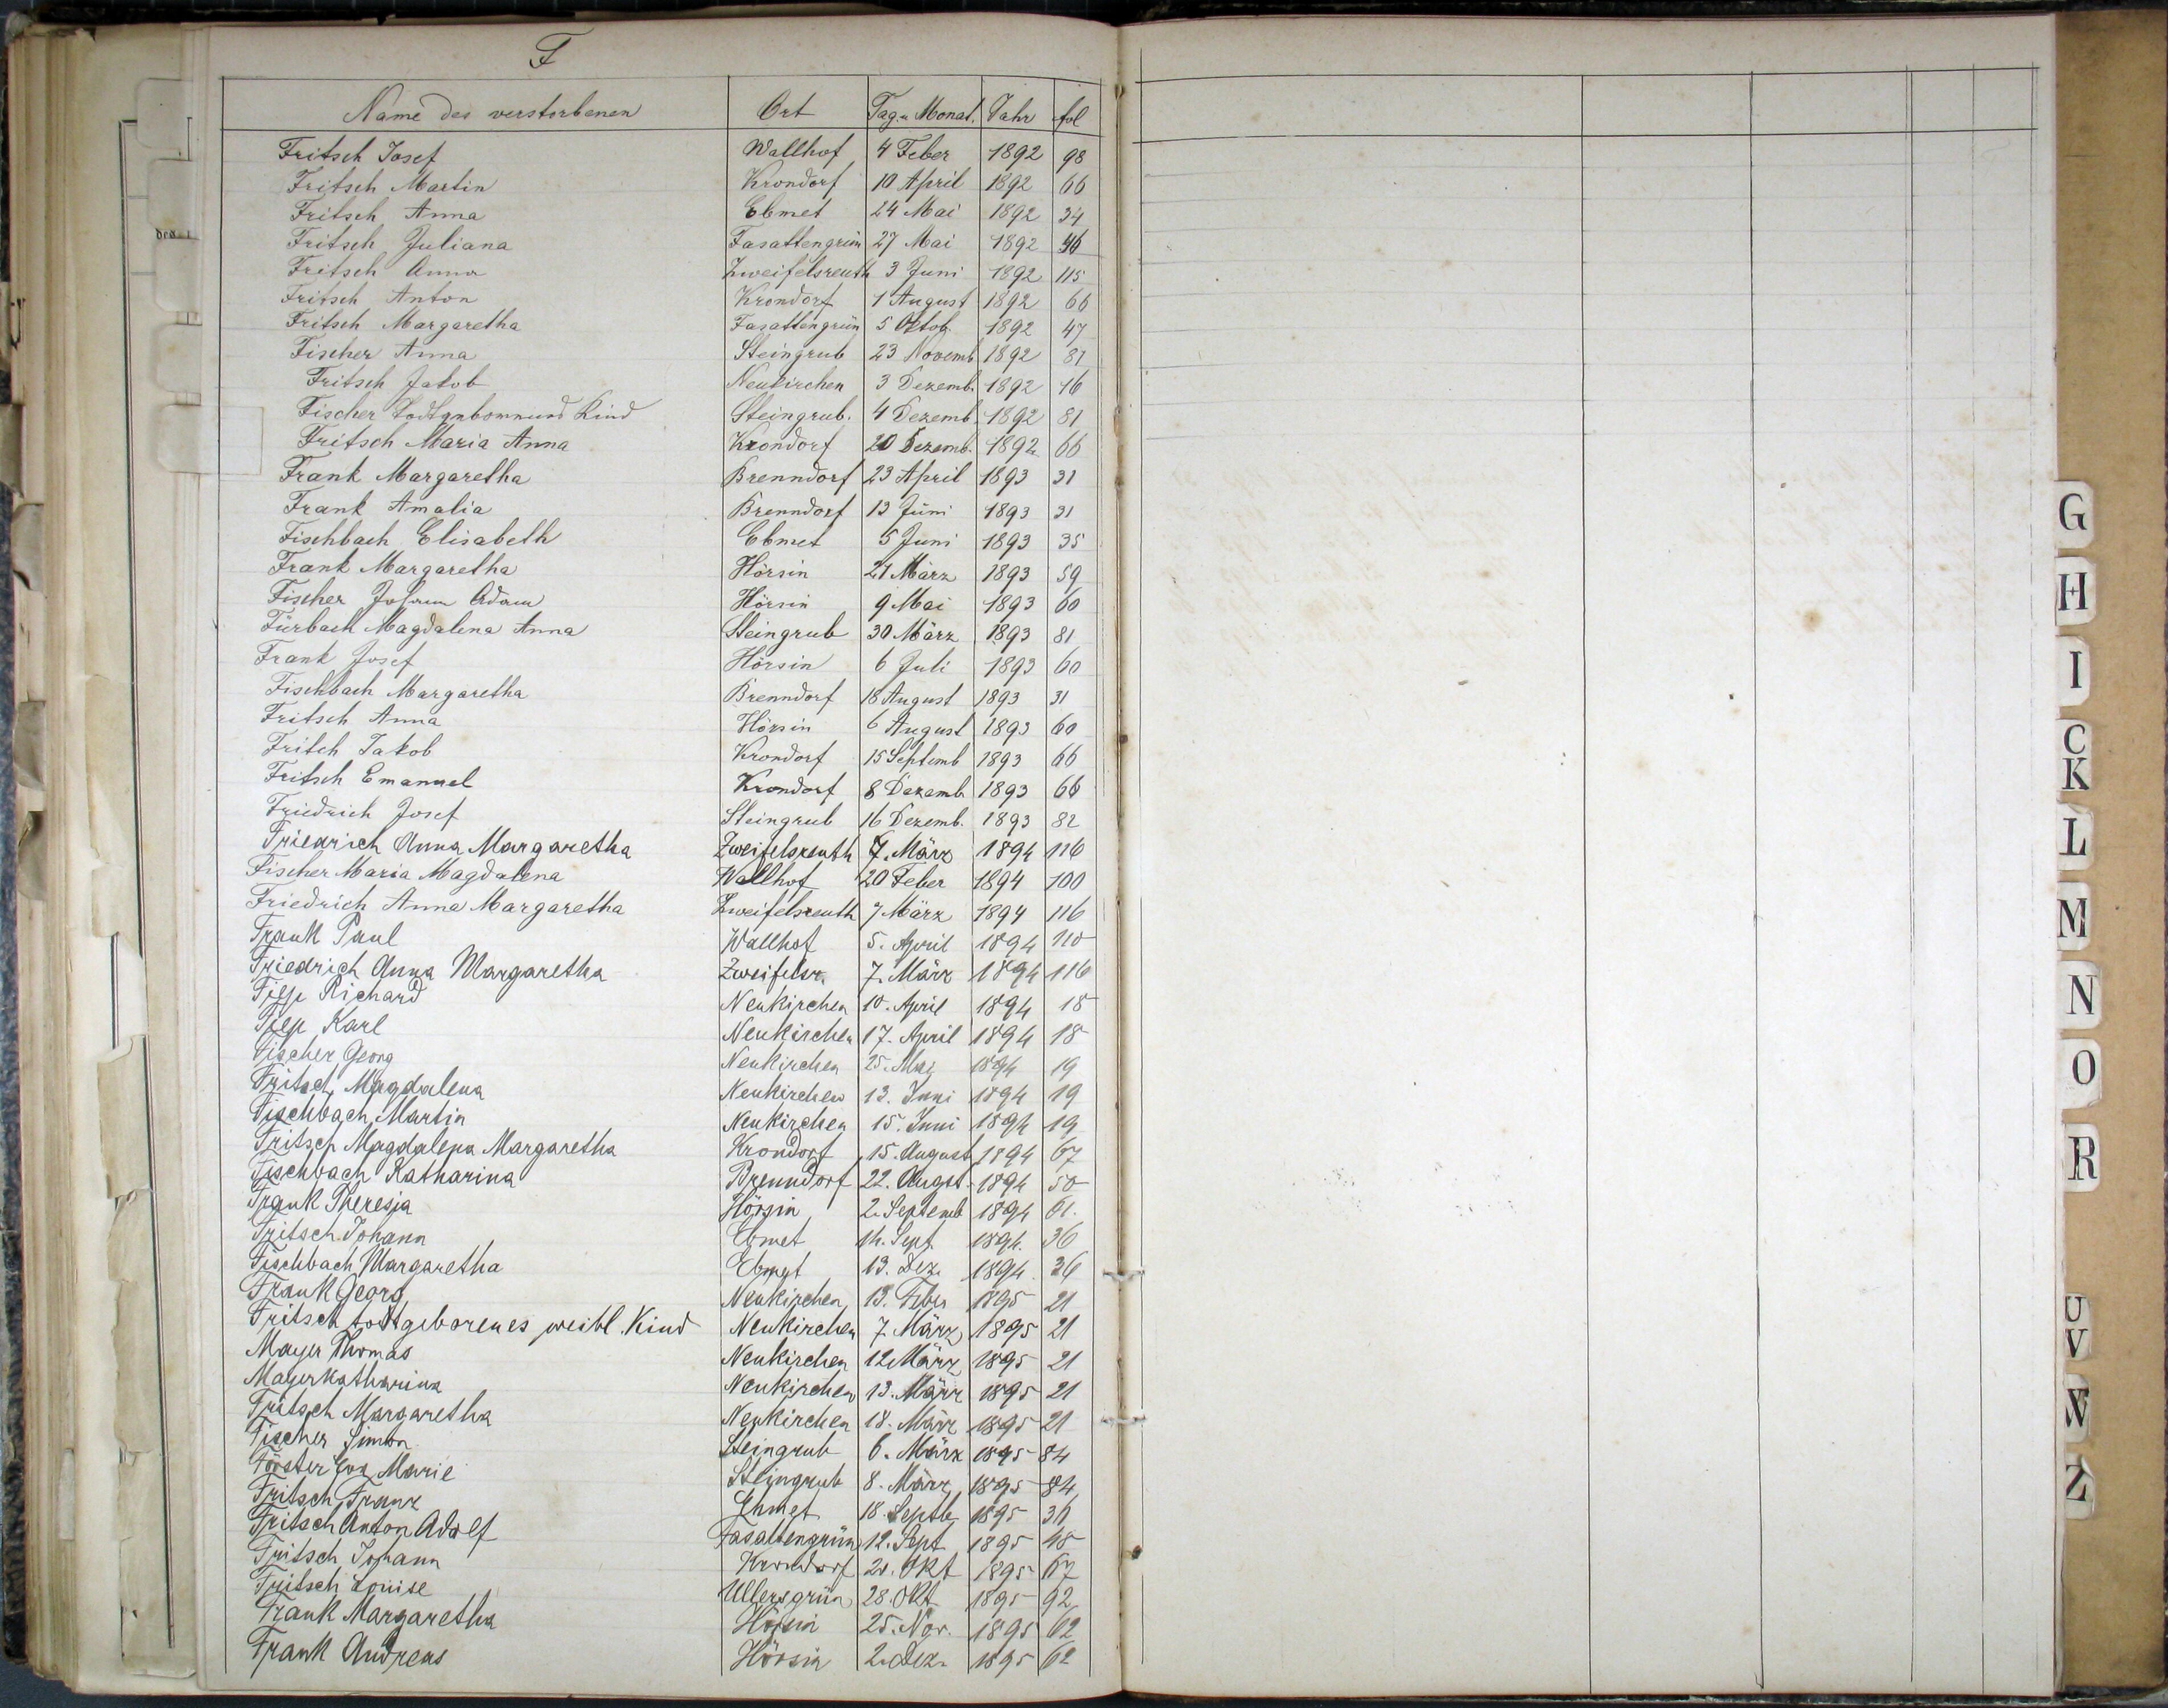 F
Name des verstorbenen Ort Tag u Monat. Jahr fol
Fritsch Josef Wallhof 4 Feber 1892 98
Fritsch Martin Krondorf 10 April 1892 66
Fritsch Anna Ebmet 24 Mai 1892 34
Fritsch Juliana Fasattengrün 27 Mai 1892 46
Fritsch Anna Zweifelsreuth 3 Juni 1892 115
Fritsch Anton Krondorf 1 August 1892 66
Fritsch Margaretha Fasattengrün 5 Oktob. 1892 47
Fischer Anna Steingrub 23 Novemb 1892 81
Fritsch Jakob Neukirchen 3 Dezemb. 1892 16
Fischer Kind Steingrub. 4 Dezemb. 1892 81
Fritsch Maria Anna Krondorf 20 Dezemb. 1892 66
Frank Margaretha Brenndorf 23 April 1893 31
Frank Amalia Brenndorf 13 Juni 1893 31
Fischbach Elisabeth Ebmet 5 Juni 1893 35
Frank Margaretha Hörsin 21 März 1893 59
Fischer Johann Adam Hörsin 9 Mai 1893 60
Fürbach Magdalena Anna Steingrub 30 März 1893 81
Frank Josef Hörsin 6 Juli 1893 60
Fischbach Margaretha Brenndorf 18 August 1893 31
Fritsch Anna Hörsin 6 August 1893 60
Fritch Jakob Krondorf 15 Septemb 1893 66
Fritsch Emanuel Krondorf 8 Dezemb. 1893 66
Friedrich Josef Steingrub 16 Dezemb. 1893 82
Friedrich Anna Margaretha Zweifelsreuth 7. März 1894 116
Fischer Maria Magdalena Wallhof 20 Feber 1894 100
Friedrich Anna Margaretha Zweifelsreuth 7 März 1894 116
Frank Paul Wallhof 5. April 1894 110
Friedrich Anna Margaretha Zweifelsr. 7. März 1894 116
Richard Neukirchen 10. April 1894 18
Karl Neukirchen 17. April 1894 18
Fischer Georg Neukirchen 25. Mai 1894 19
Fritsch Magdalena Neukirchen 13. Juni 1894 19
Fischbach Martin Neukirchen 15. Juni 1894 19
Fritsch Magdalena Margaretha Krondorf 15. August 1894 67
Fischbach Katharina Brenndorf 22. Augst. 1894 50
Frank Theresia Hörsin 2. Septemb 1894 61.
Fritsch Johann Ebmet 14. Sept. 1894. 36
Fischbach Margaretha Ebmet 13. Dez. 1894. 36
Frank Georg Neukirchen 13. Feber 1895 21
Fritsch todtgeborenes weibl. Kind Neukirchen 7 März 1895 21
Mayer Thomas Neukirchen 12 März 1895 21
Mayer Katharina Neukirchen 13. März 1895 21
Fritsch Margaretha Neukirchen 18. März 1895 21
Fischer Simon Steingrub 6. März 1895 84
Förster Eva Marie Steingrub 8. März 1895 84
Fritsch Franz Ehmet 18. Septb. 1895 36
Fritsch Anton Adolf Fasattengrün 12. Sept 1895 48
Fritsch Johann Krondorf 20. Okt 1895 67
Fritsch Louise Ullersgrün 28. Okt 1895 92
Frank Margaretha Hörsin 25. Nov. 1895 62
Frank Andreas Hörsin 2. Dez. 1895 62
G
H
I
C
K
L
M
N
O
R
U
V
W
Z